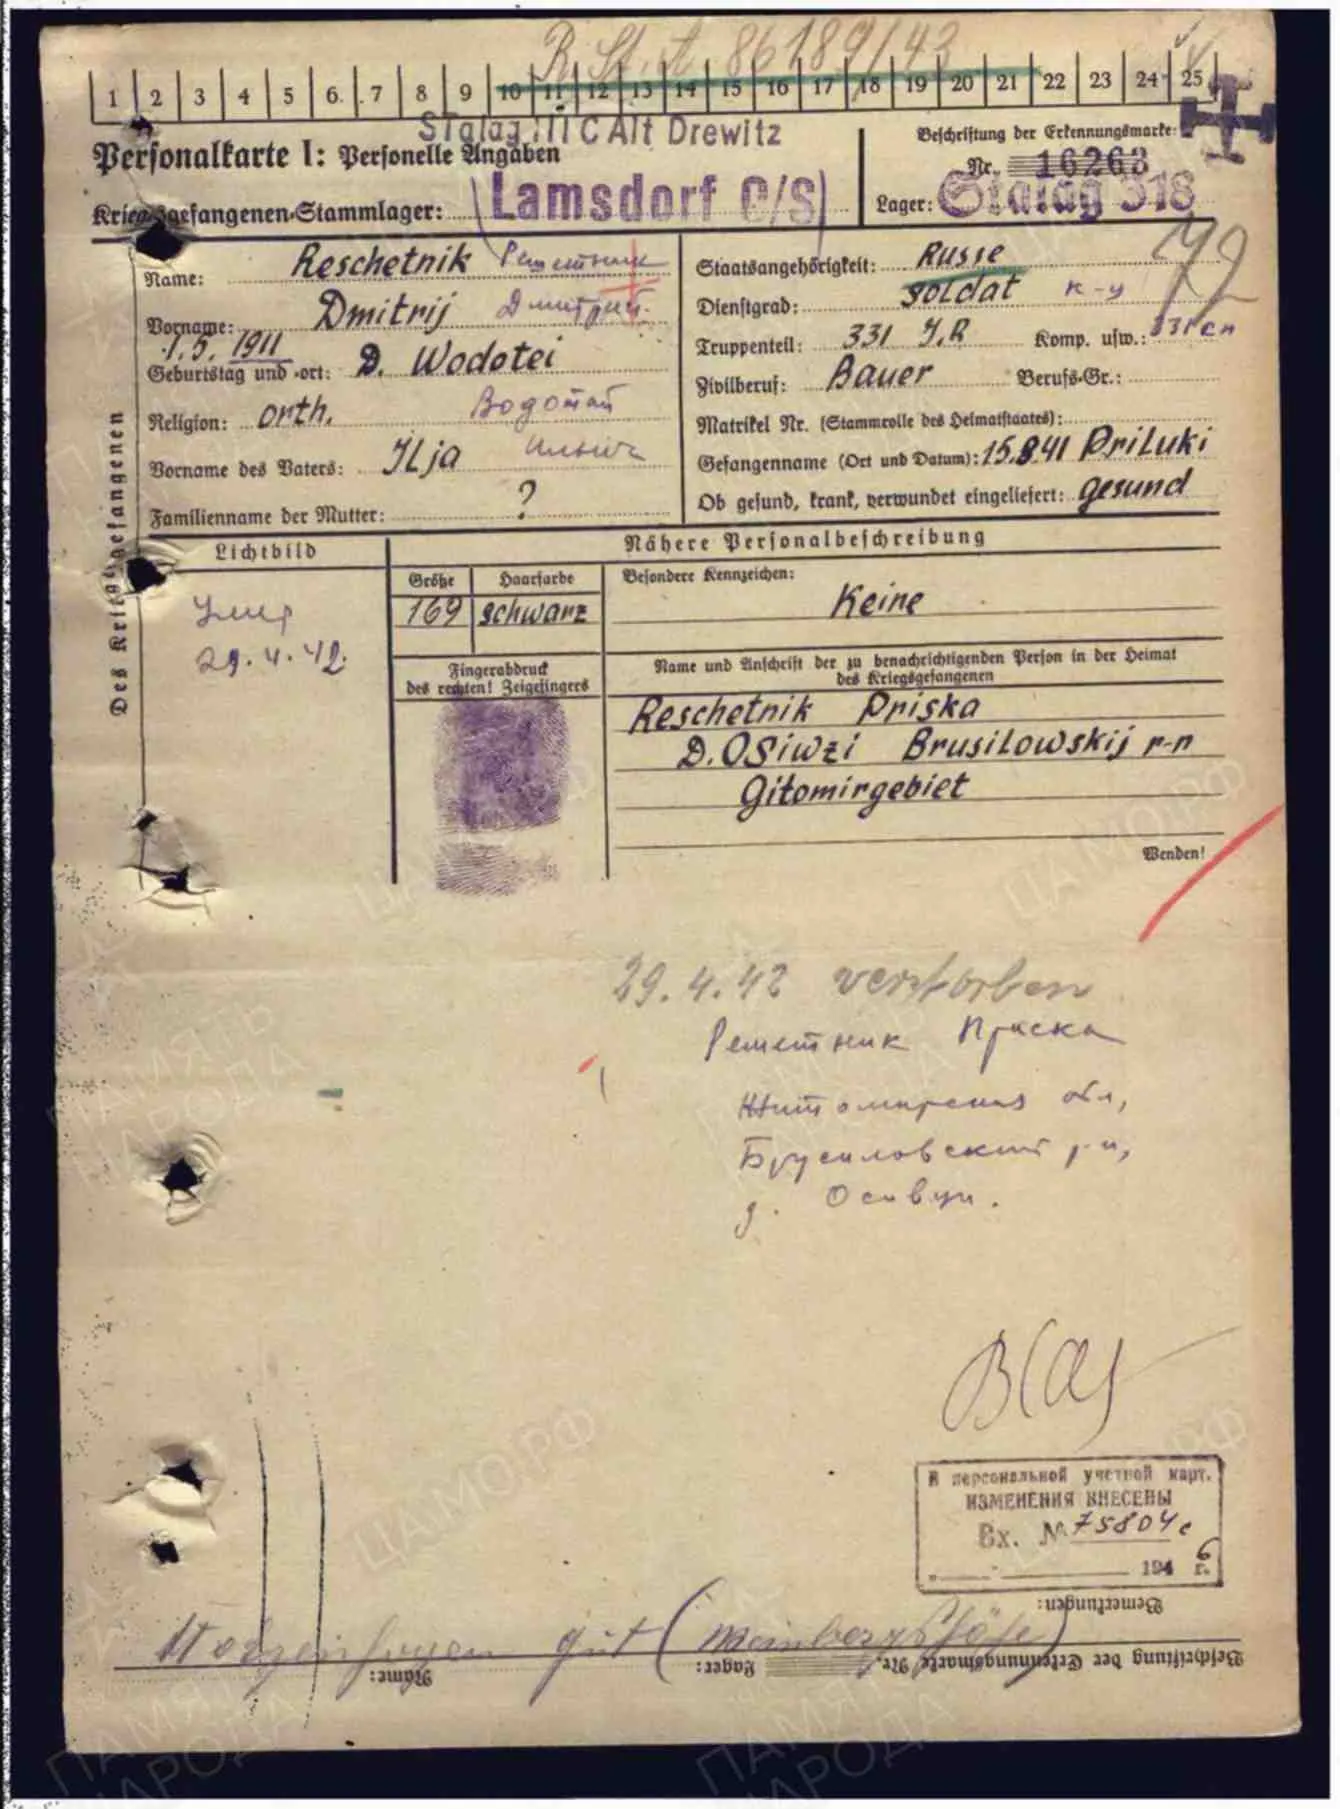 R.St.A 86189/43
1 2 3 4 5 6. .7 8 9 10 11 12 13 14 15 16 17 18 19 20 21 22 23 24 25
Stalag III C Alt Drewitz
Personalkarte I: Personelle Angaben
Beschriftung der Erkennungsmarke:
Nr. 16263
Kriegsgefangenen-Stammlager: (Lamsdorf O/S)
Lager: Stalag 318
Des Kriegsgefangenen
Name: Reschetnik Решетник
Vorname: Dmitrij Дмитрий.
Geburtstag und -ort: 1.5.1911 D. Wodotei
Religion: orth. Водотай
Vorname des Vaters: Ilja Ильич
Familienname der Mutter: ?
Staatsangehörigkeit: Russe
Dienstgrad: Soldat к-ц
Truppenteil: 331 I.R Komp. usw.: 331 сп
Zivilberuf: Bauer Berufs-Gr.:
Matrikel Nr. (Stammrolle des Heimatstaates):
Gefangenname (Ort und Datum): 15.8.41 Priluki
Ob gesund, krank, verwundet eingeliefert: gesund
Lichtbild
Умер
29.4.42.
Nähere Personalbeschreibung
Größe Haarfarbe Besondere Kennzeichen:
169 schwarz Keine
Fingerabdruck
des rechten! Zeigefingers
Name und Anschrift der zu benachrichtigenden Person in der Heimat
des Kriegsgefangenen
Reschetnik Priska
D. Osiwzi Brusilowskij r-n
Gitomirgebiet
Wenden!
29.4.42 verstorben
Решетник Приска
Житомирская обл,
Брусиловский р-н,
д. Осивци.
В персональной учетной карт.
ИЗМЕНЕНИЯ ВНЕСЕНЫ
Вх. № 75804с
" " 1946 г.
Bemerkungen:
gut (
Beschriftung der Erkennungsmarke Nr. Lager: Name:
ПАМЯТЬ НАРОДА
ЦАМО.РФ